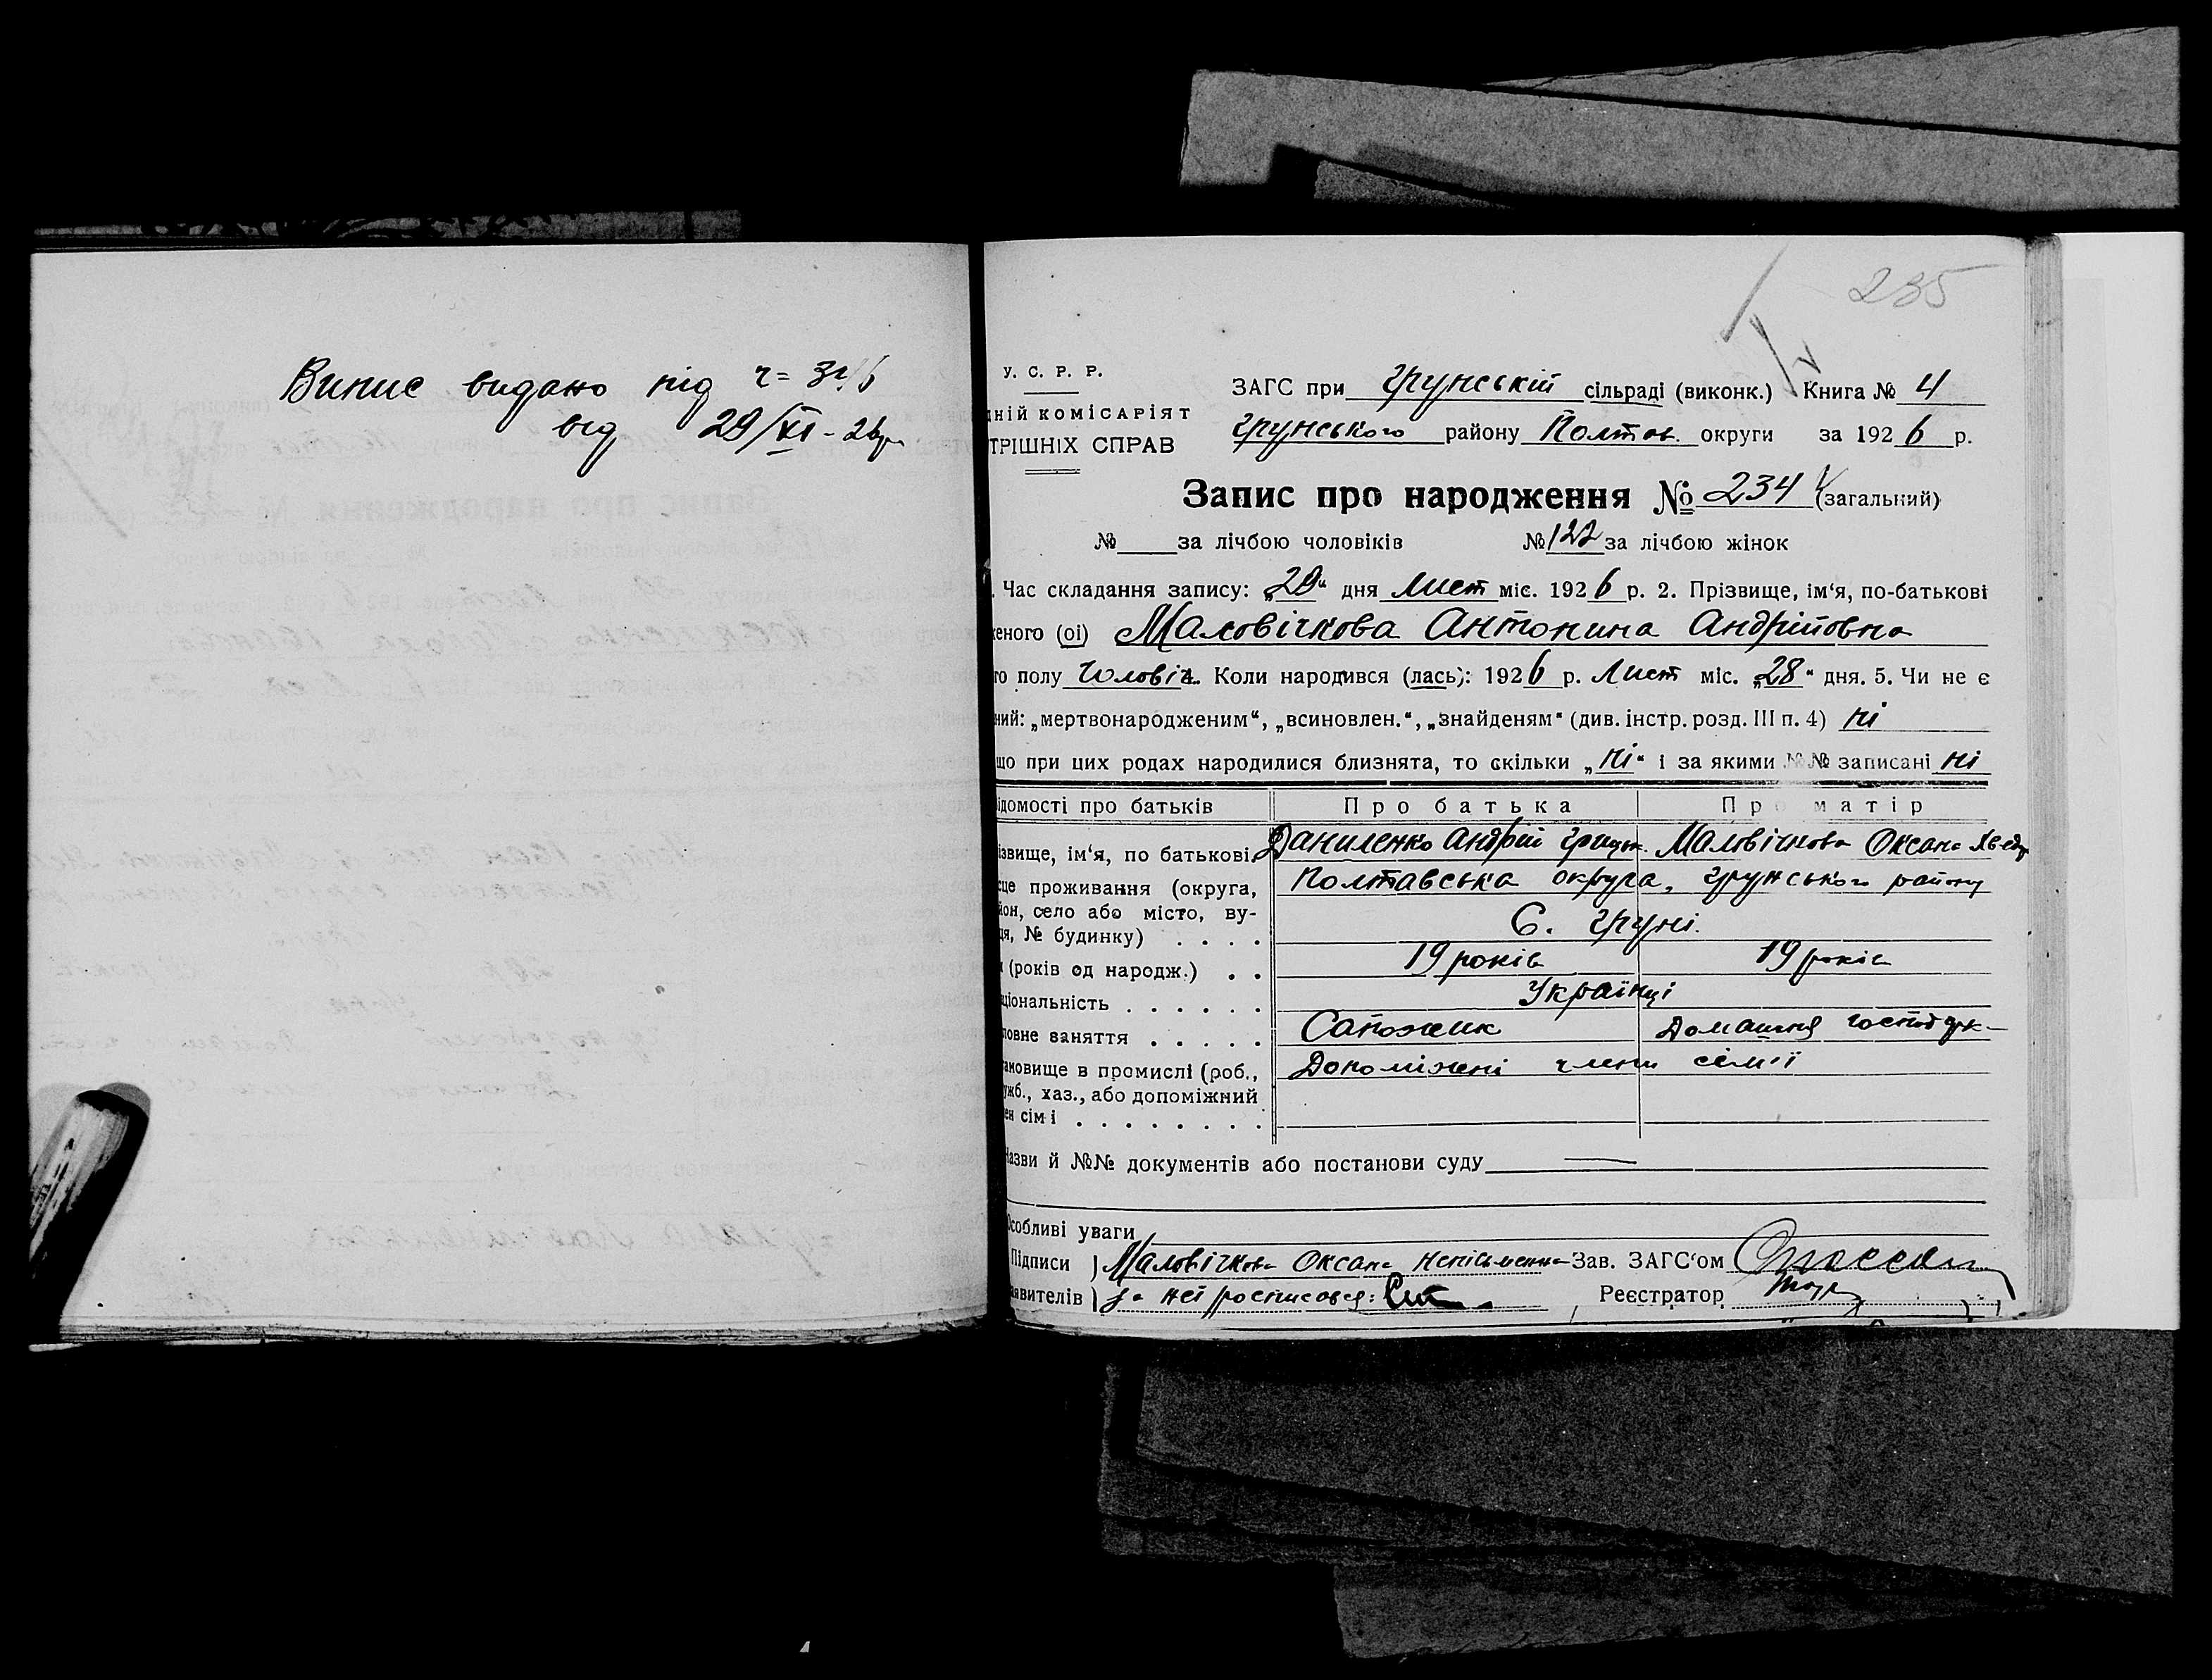 Випис видано під ч=
від 29/XI-26р
235
У. С. Р. Р.
ЗАГС при Грунській сільраді (виконк.) Книга № 4
дній комісаріят
Грунського району Полтав. округи за 1926 р.
трішніх справ
Запис про народження № 234 (загальний)
№ за лічбою чоловіків № 122 за лічбою жінок
. Час складання запису: „29“ дня Лист міс. 1926 р. 2. Прізвище, ім‘я, по-батькові
женого (ої) Маловічкова Антонина Андрійовна
го полу Чоловіч. Коли народився (лась): 1926 р. Лист міс. „28“ дня. 5. Чи не є
ний: „мертвонародженим“, „всиновлен.“, „знайденям“ (див. інстр. розд. III п. 4) ні
що при цих родах народилися близнята, то скільки „ні“ і за якими №№ записані ні
ідомості про батьків Про батька Про матір
ізвище, ім‘я, по батькові. Даниленко Андрій Грицьк. Маловічкова Оксана Хвед
сце проживання (округа, Полтавська округа, Грунського району
йон, село або місто, ву-
ця, № будинку) . . . . С. Груні.
(років од народж.) . . 19 років 19 років
ціональність . . . . . . Українці
ловне заняття . . . . . Сапожник Домашня господрк-
ановище в промислі (роб., Допоміжені члени сім'ї
ужб., хаз., або допоміжний
ен сімі . . . . . . . .
Назви й №№ документів або постанови суду —
Особливі уваги
Підписи Маловічкова Оксана неписьменна Зав. ЗАГС‘ом
аявителів за неї росписався: Реєстратор